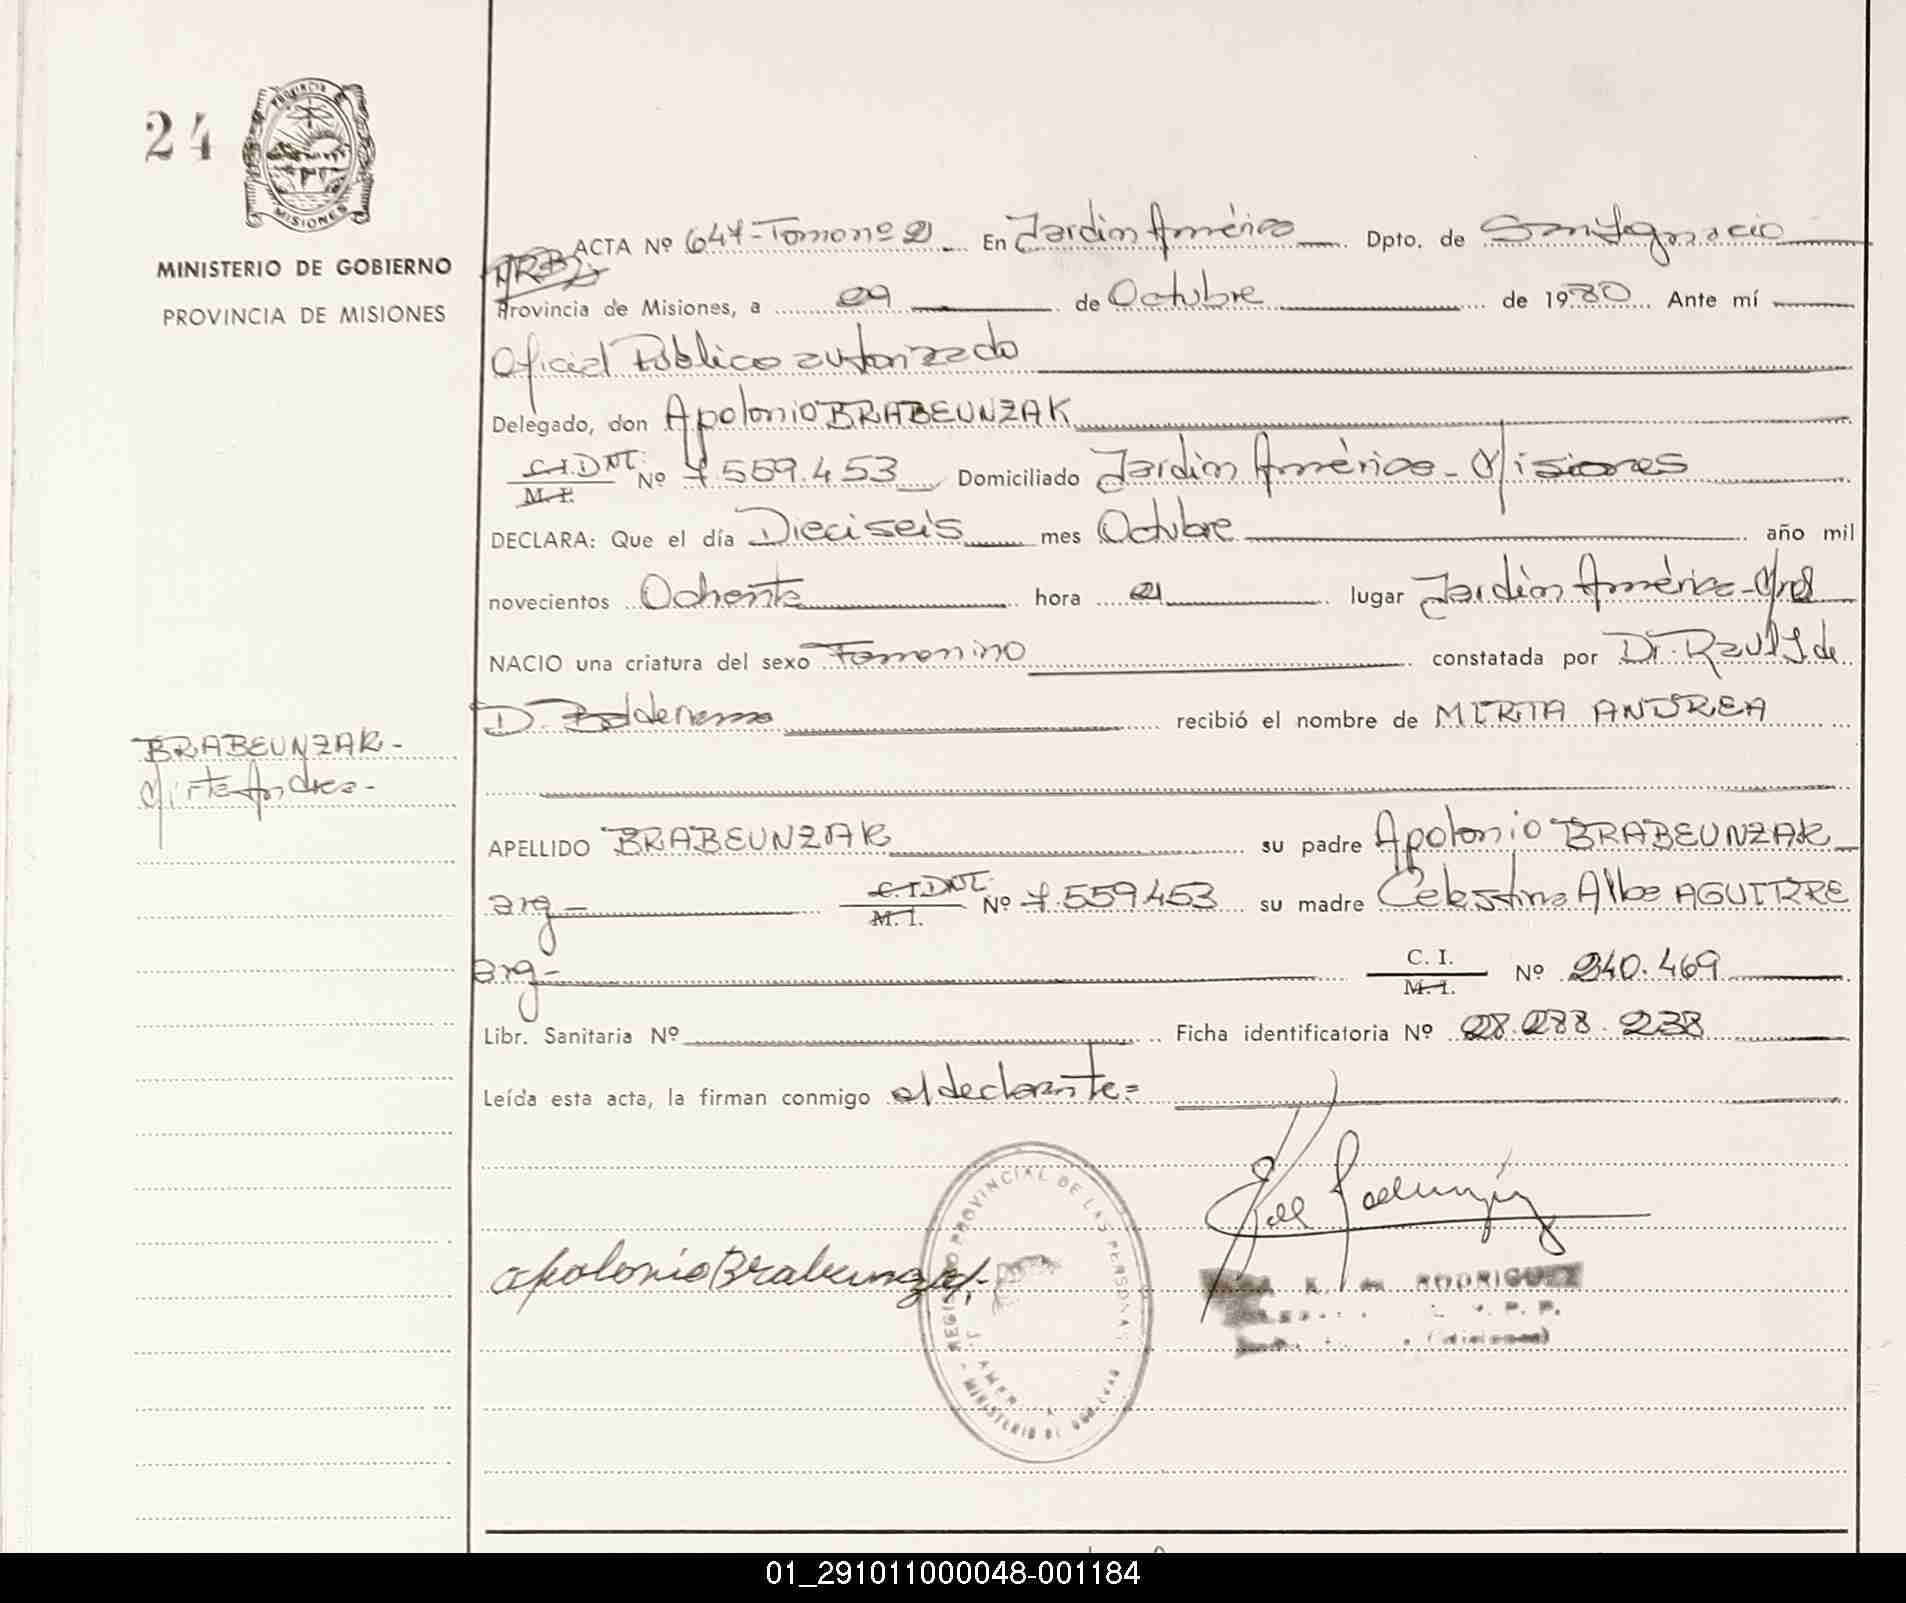 24
PROVINCIA
MISIONES
MINISTERIO DE GOBIERNO
PROVINCIA DE MISIONES
ACTA Nº 647-Tomo nº 2 En Jardín América Dpto. de San Ignacio
Provincia de Misiones, a 29 de Octubre de 1980 Ante mí
Oficial Público autorizado
Delegado, don Apolonio BRABEUNZAK
C.I. DNI. M. I. Nº 7.559.453 Domiciliado Jardín América - Misiones
DECLARA: Que el día Dieciseis mes Octubre año mil
novecientos Ochenta hora 21 lugar Jardín América - Mnes
NACIO una criatura del sexo Femenino constatada por Dr. Raul J. de
D. recibió el nombre de MIRTA ANDREA
BRABEUNZAK -
Mirta Andrea -
APELLIDO BRABEUNZAK su padre Apolonio BRABEUNZAK
arg - C.I. DNI. M. I. Nº 7.559.453 su madre Celestina Alba AGUIRRE
arg - C. I. M. I. Nº 240.469
Libr. Sanitaria Nº Ficha identificatoria Nº 28.288.238
Leída esta acta, la firman conmigo el declarante =
Apolonio Brabeunzak
REGISTRO PROVINCIAL DE LAS PERSONAS
MINISTERIO DE
RODRIGUEZ
(Misiones)
01_291011000048-001184